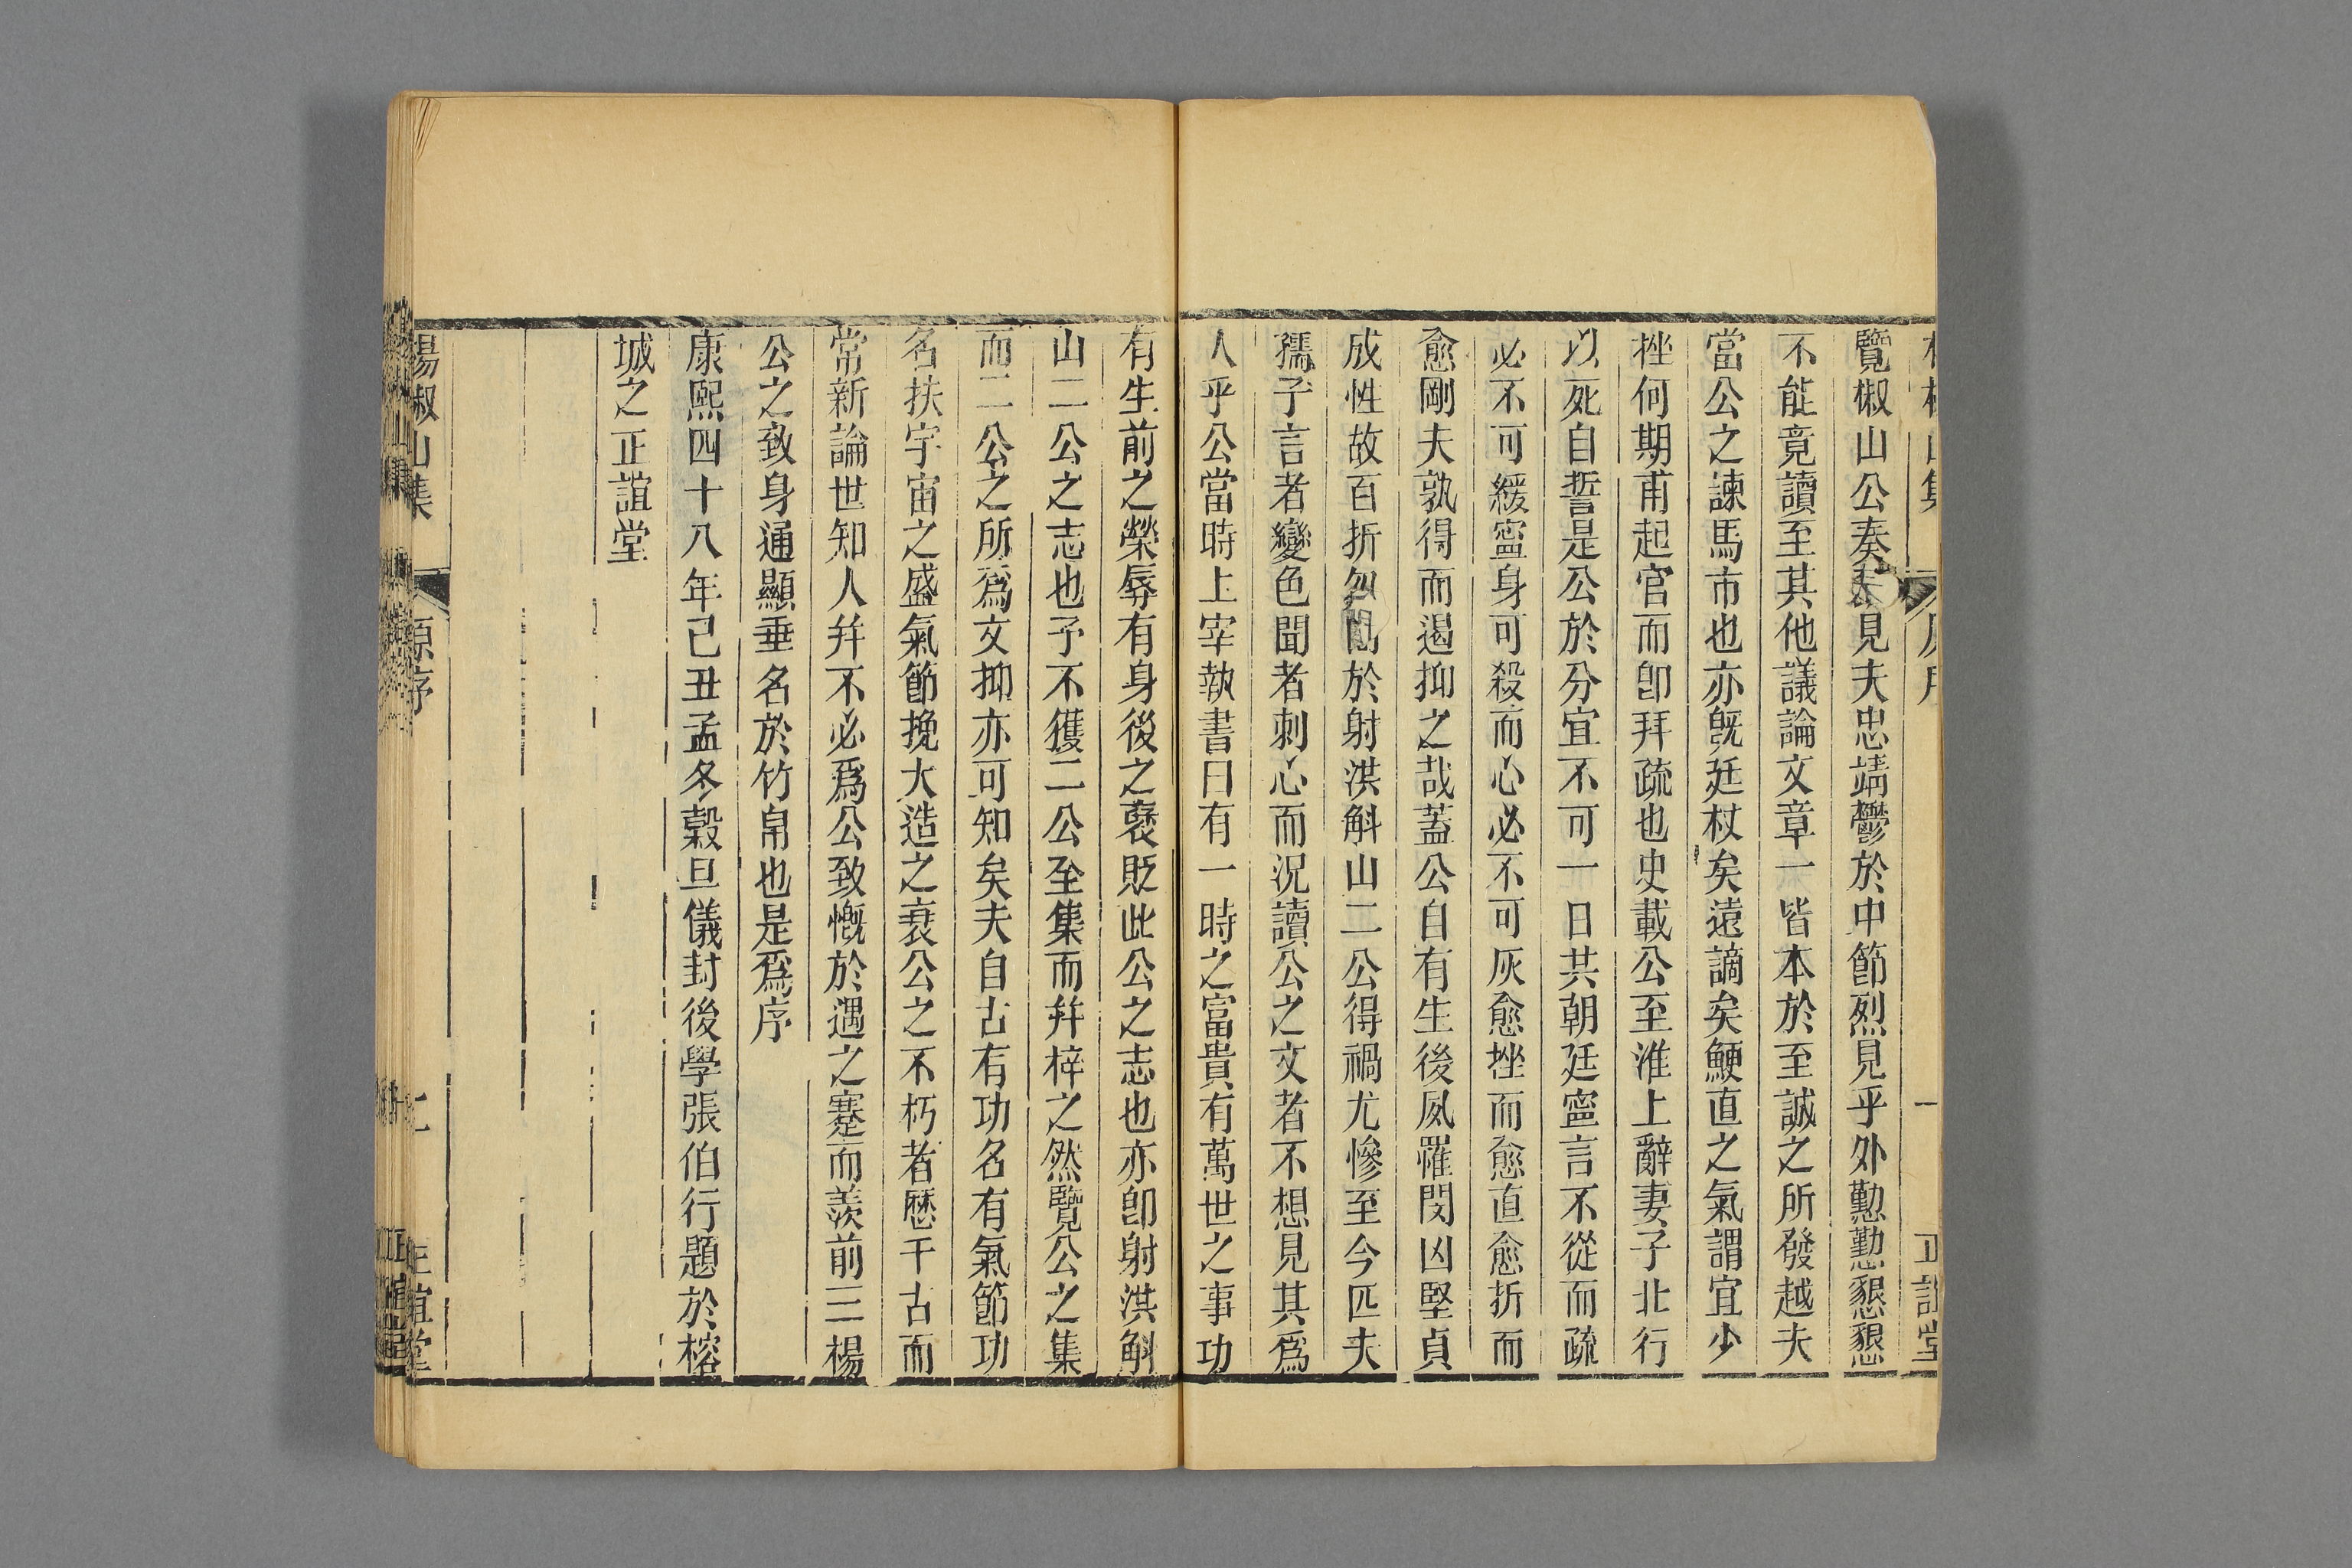 覽椒山公奏表見夫忠靖鬱於中節烈見乎外懃懃懇懇
不能竟讀至其他議論文章一皆本於至誠之所發越夫
當公之諫馬市也亦旣廷杖矣遠謫矣鯁直之氣謂宜少
挫何期甫起官而卽拜疏也史載公至淮上辭妻子北行
以死自誓是公於分宜不可一日共朝廷寧言不從而疏
必不可緩寧身可殺而心必不可灰愈挫而愈直愈折而
愈剛夫孰得而遏抑之哉蓋公自有生後夙罹閔凶堅貞
成性故百折於射洪斛山二公得禍尤慘至今匹夫
孺子言者變色聞者刺心而況讀公之文者不想見其爲
人乎公當時上宰執書曰有一時之富貴有萬世之事功
有生前之榮辱有身後之褒貶此公之志也亦卽射洪斛
山二公之志也予不獲二公至集而幷梓之然覽公之集
而二公之所爲文抑亦可知矣夫自古有功名有氣節功
名扶宇宙之盛氣節挽大造之衰公之不朽者歷千古而
常新論世知人幷不必爲公致慨於遇之蹇而羨前三楊
公之致身通顯垂名於竹帛也是爲序
康熙四十八年己丑孟冬穀旦儀封後學張伯行題於榕
城之正誼堂
楊椒山集 原序 二 正誼堂